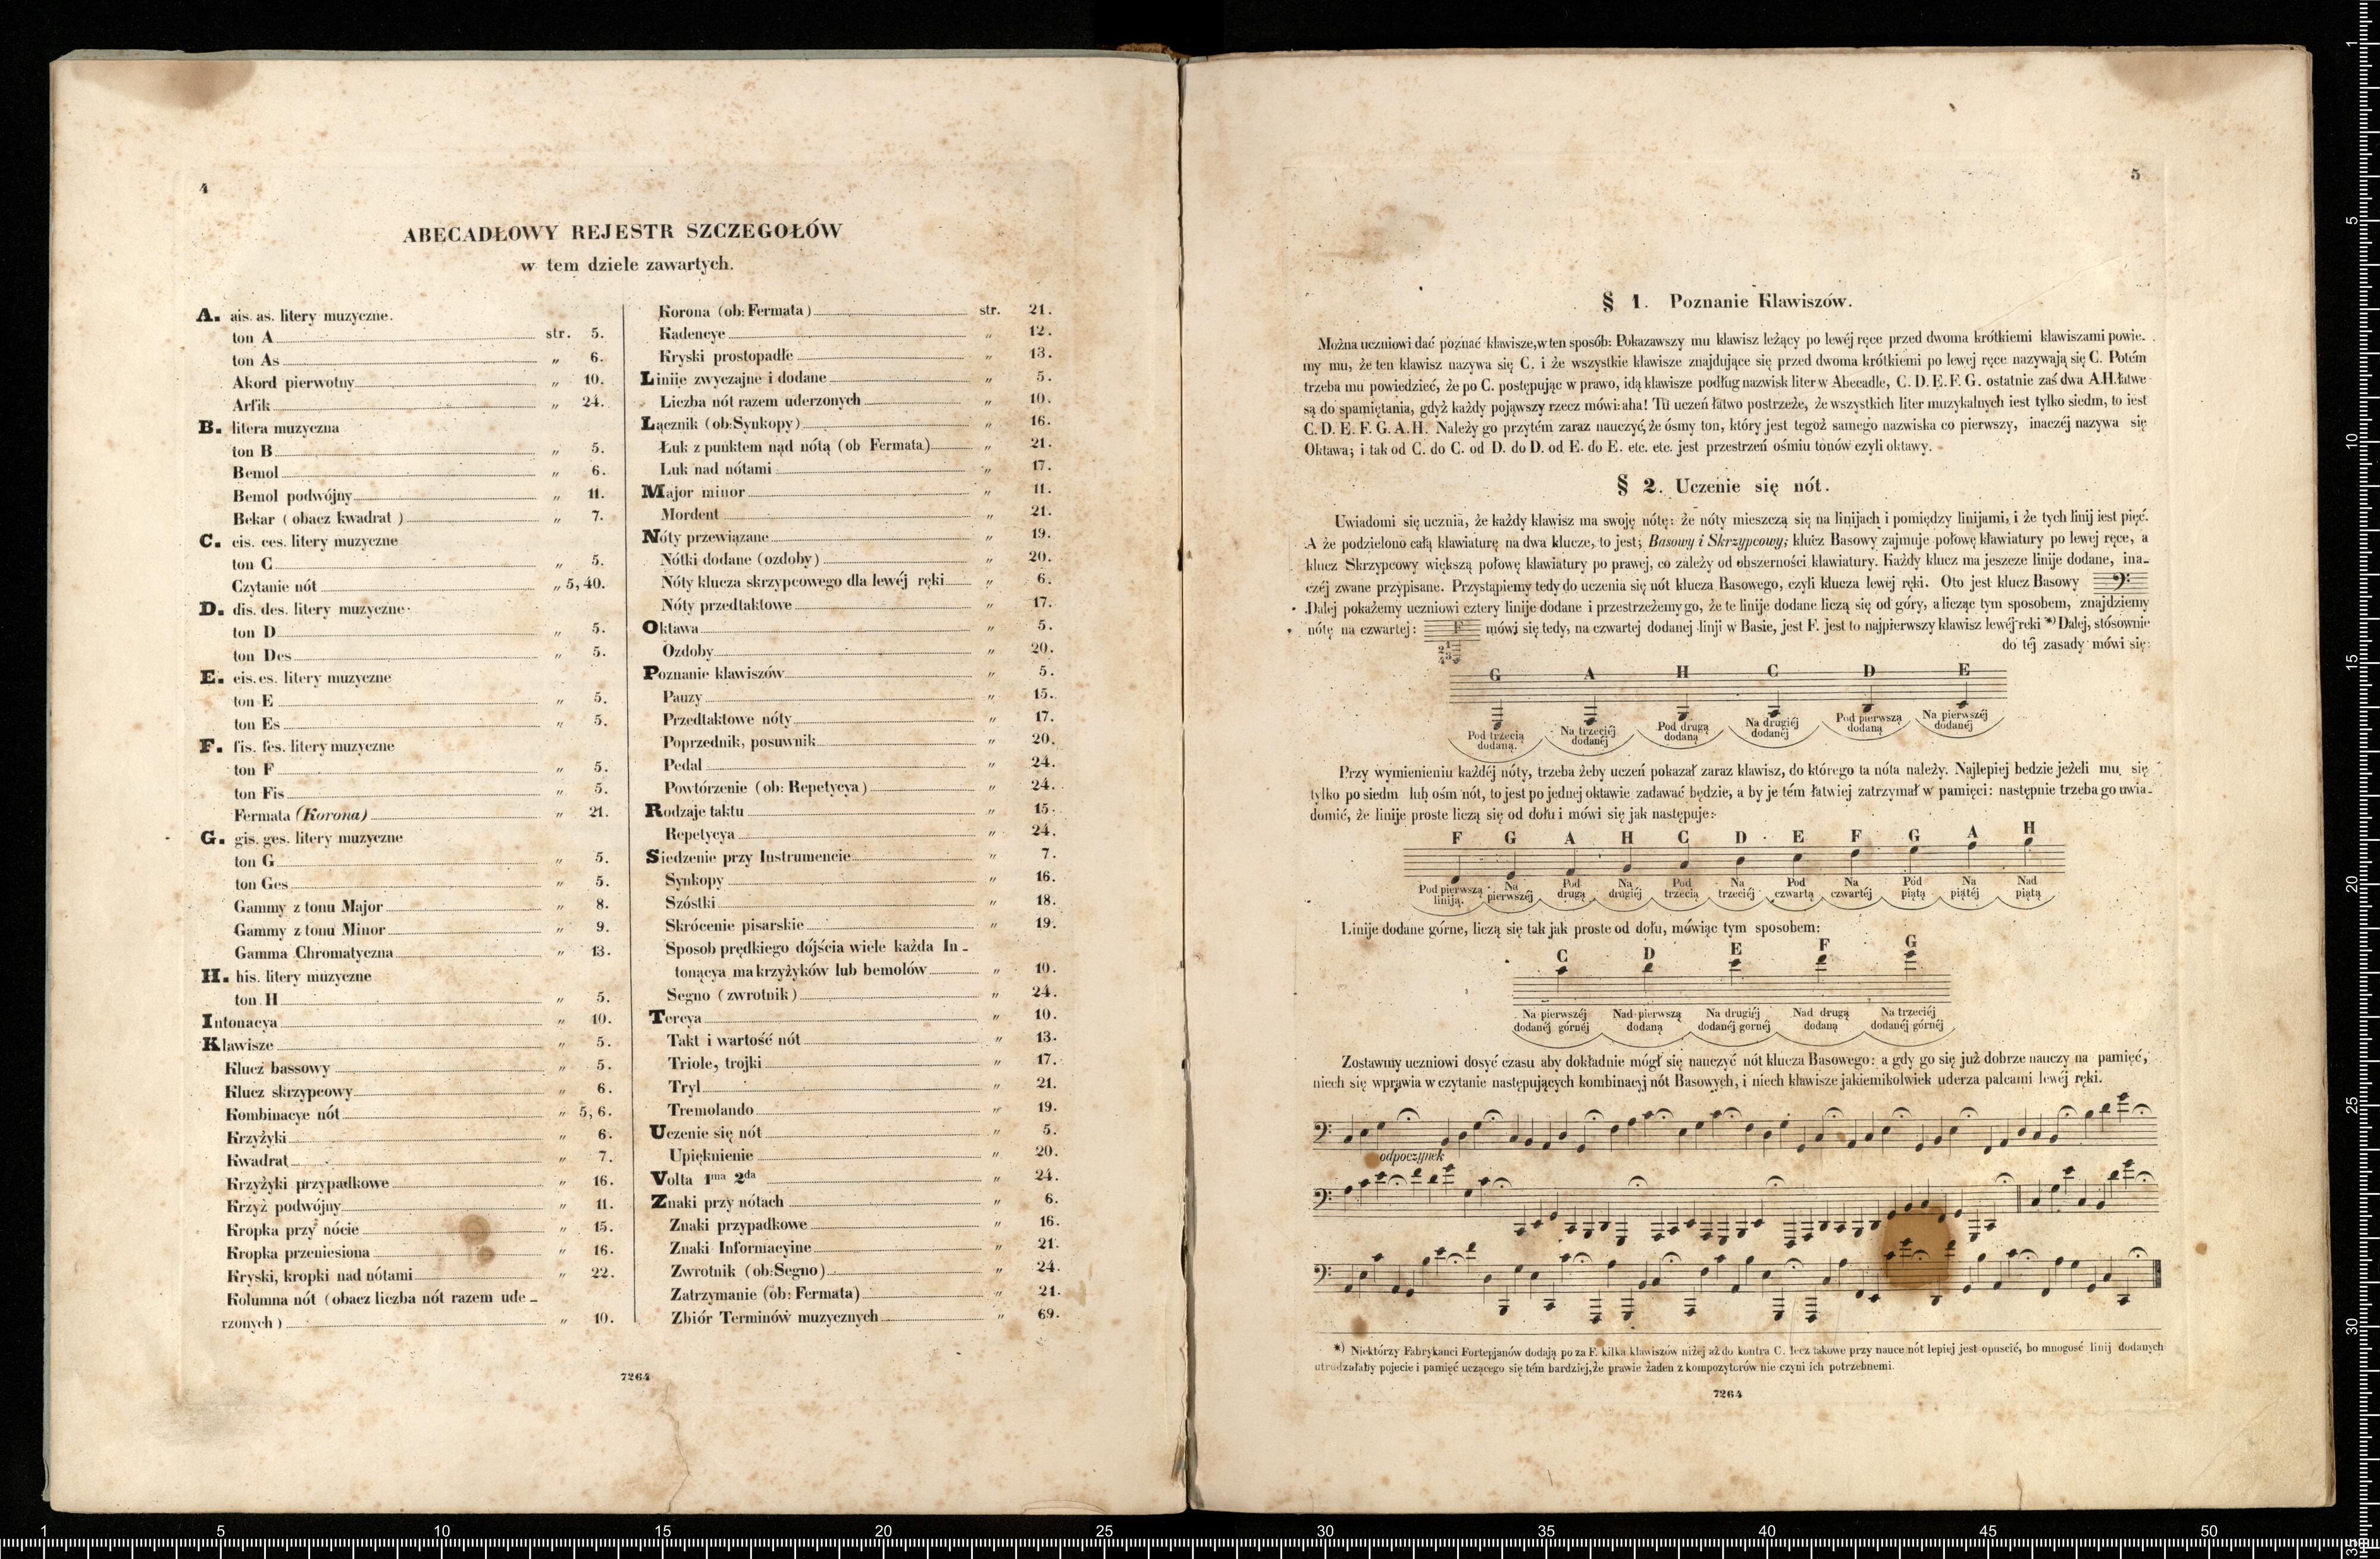 4
ABECADŁOWY REJESTR SZCZEGOŁÓW
w tem dziele zawartych.
A. ais. as. litery muzyczne.
ton A str. 5.
ton As „ 6.
Akord pierwotny „ 10.
Arfik „ 24.
B. litera muzyczna
ton B „ 5.
Bemol „ 6.
Bemol podwójny „ 11.
Bekar ( obacz kwadrat ) „ 7.
C. cis. ces. litery muzyczne
ton C „ 5.
Czytanie nót „ 5, 40.
D. dis. des. litery muzyczne
ton D „ 5.
ton Des „ 5.
E. eis. es. litery muzyczne
ton E „ 5.
ton Es „ 5.
F. fis. fes. litery muzyczne
ton F „ 5.
ton Fis „ 5.
Fermata (Korona) „ 21.
G. gis. ges. litery muzyczne
ton G „ 5.
ton Ges „ 5.
Gammy z tonu Major „ 8.
Gammy z tonu Minor „ 9.
Gamma Chromatyczna „ 13.
H. his. litery muzyczne
ton H „ 5.
Intonacya „ 10.
Klawisze „ 5.
Klucz bassowy „ 5.
Klucz skrzypcowy „ 6.
Kombinacye nót „ 5, 6.
Krzyżyki „ 6.
Kwadrat „ 7.
Krzyżyki przypadkowe „ 16.
Krzyż podwójny „ 11.
Kropka przy nócie „ 15.
Kropka przeniesiona „ 16.
Kryski, kropki nad nótami „ 22.
Kolumna nót (obacz liczba nót razem ude-
rzonych ) „ 10.
Korona (ob: Fermata) str. 21.
Kadencye „ 12.
Kryski prostopadłe „ 13.
Liniie zwyczajne i dodane „ 5.
Liczba nót razem uderzonych „ 10.
Łącznik (ob: Synkopy) „ 16.
Łuk z punktem nad nótą (ob Fermata) „ 21.
Luk nad nótami „ 17.
Major minor „ 11.
Mordent „ 21.
Nóty przewiązane „ 19.
Nótki dodane (ozdoby) „ 20.
Nóty klucza skrzypcowego dla lewéj ręki „ 6.
Nóty przedtaktowe „ 17.
Oktawa „ 5.
Ozdoby „ 20.
Poznanie klawiszów „ 5.
Pauzy „ 15.
Przedtaktowe nóty „ 17.
Poprzednik, posuwnik „ 20.
Pedal „ 24.
Powtórzenie (ob: Repetycya) „ 24.
Rodzaje taktu „ 15.
Repetycya „ 24.
Siedzenie przy Instrumencie „ 7.
Synkopy „ 16.
Szóstki „ 18.
Skrócenie pisarskie „ 19.
Sposob prędkiego dójścia wiele każda In-
tonacya ma krzyżyków lub bemolów „ 10.
Segno (zwrotnik) „ 24.
Tercya „ 10.
Takt i wartość nót „ 13.
Triole, trojki „ 17.
Tryl „ 21.
Tremolando „ 19.
Uczenie się nót „ 5.
Upięknienie „ 20.
Volta 1ma 2da „ 24.
Znaki przy nótach „ 6.
Znaki przypadkowe „ 16.
Znaki Informacyine „ 21.
Zwrotnik (ob: Segno) „ 24.
Zatrzymanie (ob: Fermata) „ 21.
Zbiór Terminów muzycznych „ 69.
7264
5
§ 1. Poznanie Klawiszów.
Można uczniowi dać poznać klawisze, w ten sposób: Pokazawszy mu klawisz leżący po lewéj ręce przed dwoma krótkiemi klawiszami powie-
my mu, że ten klawisz nazywa się C. i że wszystkie klawisze znajdujące się przed dwoma krótkiemi po lewej ręce nazywają się C. Potém
trzeba mu powiedzieć, że po C. postępując w prawo, idą klawisze podług nazwisk liter w Abecadle, C. D. E. F. G. ostatnie zaś dwa A.H. łatwe
są do spamiętania, gdyż każdy pojąwszy rzecz mówi: aha! Tu uczeń łatwo postrzeże, że wszystkich liter muzykalnych iest tylko siedm, to iest
C. D. E. F. G. A. H. Należy go przytém zaraz nauczyć, że ósmy ton, który jest tegoż samego nazwiska co pierwszy, inaczéj nazywa się
Oktawa; i tak od C. do C. od D. do D. od E. do E. etc. etc. jest przestrzeń ośmiu tonów czyli oktawy.
§ 2. Uczenie się nót.
Uwiadomi się ucznia, że każdy klawisz ma swoję nótę: że nóty mieszczą się na linijach i pomiędzy linijami, i że tych linij iest pięć.
A że podzielono całą klawiaturę na dwa klucze, to jest; Basowy i Skrzypcowy; klucz Basowy zajmuje połowę klawiatury po lewej ręce, a
klucz Skrzypcowy większą połowę klawiatury po prawej, co zależy od obszerności klawiatury. Każdy klucz ma jeszcze linije dodane, ina-
czéj zwane przypisane. Przystąpiemy tedy do uczenia się nót klucza Basowego, czyli klucza lewej ręki. Oto jest klucz Basowy
Dalej pokażemy uczniowi cztery linije dodane i przestrzeżemy go, że te linije dodane liczą się od góry, a licząc tym sposobem, znajdziemy
nótę na czwartej: F mówi się tedy, na czwartej dodanej linji w Basie, jest F. jest to najpierwszy klawisz lewéj reki *) Dalej, stósownie
1 2 3 4
do téj zasady mówi się:
G A H C D E
Pod trzecią dodaną. Na trzeciéj dodanéj Pod drugą dodaną Na drugiéj dodanéj Pod pierwszą dodaną Na pierwszéj dodanéj
Przy wymienieniu każdéj nóty, trzeba żeby uczeń pokazał zaraz klawisz, do którego ta nóta należy. Najlepiej bedzie jeżeli mu się
tylko po siedm lub ośm nót, to jest po jednej oktawie zadawać będzie, a by je tém łatwiej zatrzymał w pamięci: następnie trzeba go uwia-
domić, że linije proste liczą się od dołu i mówi się jak następuje:
F G A H C D E F G A H
Pod pierwszą liniją. Na pierwszéj Pod drugą Na drugiéj Pod trzecią Na trzeciéj Pod czwartą Na czwartéj Pod piątą Na piątéj Nad piątą
Linije dodane górne, liczą się tak jak proste od dołu, mówiąc tym sposobem:
C D E F G
Na pierwszéj dodanéj górnéj Nad pierwszą dodaną Na drugiéj dodanéj gornéj Nad drugą dodaną Na trzeciéj dodanéj górnéj
Zostawmy uczniowi dosyć czasu aby dokładnie mógł się nauczyć nót klucza Basowego: a gdy go się już dobrze nauczy na pamięć,
niech się wprawia w czytanie następujących kombinacyj nót Basowych, i niech kławisze jakiemikolwiek uderza palcami lewéj ręki.
odpoczynek
*) Niektórzy Fabrykanci Fortepjanów dodają po za F. kilka klawiszów niżej aż do kontra C. lecz takowe przy nauce nót lepiej jest opuscić, bo mnogosć linij dodanych
utrudzałaby pojecie i pamięć uczącego się tém bardziej, że prawie żaden z kompozytorów nie czyni ich potrzebnemi.
7264
1 5 10 15 20 25 30 35 40 45 50
1 5 10 15 20 25 30 35